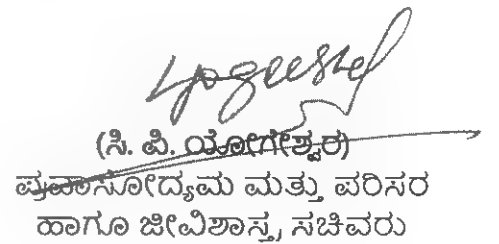 (ಸಿ. ಪಿ. ಯೋಗೇಶ್ವರ)
ಪ್ರವಾಸೋದ್ಯಮ ಮತ್ತು ಪರಿಸರ
ಹಾಗೂ ಜೀವಿಶಾಸ್ತ್ರ ಸಚಿವರು